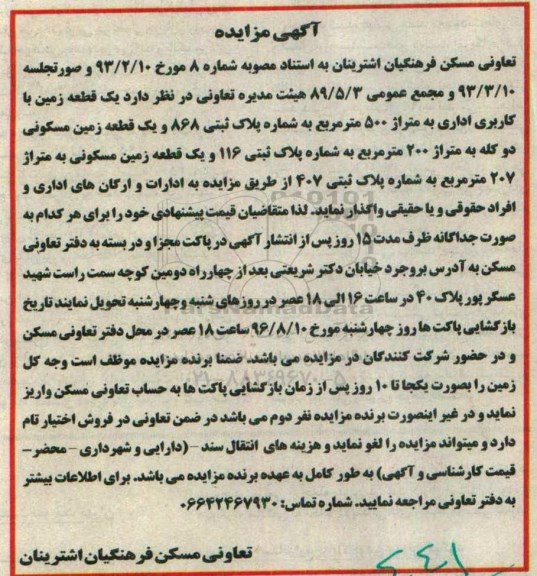 آگهی مزایده
تعاونی مسکن فرهنگیان اشترینان به استناد مصوبه شماره ۸ مورخ ۹۳/۲/۱۰ و صورتجلسه
۹۳/۳/۱۰ و مجمع عمومی ۸۹/۵/۳ هیئت مدیره تعاونی در نظر دارد یک قطعه زمین با
کاربری اداری به متراژ ۵۰۰ مترمربع به شماره پلاک ثبتی ۸۶۸ و یک قطعه زمین مسکونی
دو کله به متراژ ۲۰۰ مترمربع به شماره پلاک ثبتی ۱۱۶ و یک قطعه زمین مسکونی به متراژ
۲۰۷ مترمربع به شماره پلاک ثبتی ۴۰۷ از طریق مزایده به ادارات و ارگان های اداری و
افراد حقوقی و یا حقیقی واگذار نماید. لذا متقاضیان قیمت پیشنهادی خود را برای هر کدام به
صورت جداگانه ظرف مدت ۱۵ روز پس از انتشار آگهی در پاکت مجزا و در بسته به دفتر تعاونی
مسکن به آدرس بروجرد خیابان دکتر شریعتی بعد از چهارراه دومین کوچه سمت راست شهید
عسگر پور پلاک ۴۰ در ساعت ۱۶ الی ۱۸ عصر در روزهای شنبه وچهارشنبه تحویل نمایند تاریخ
بازگشایی پاکت ها روز چهارشنبه مورخ ۹۶/۸/۱۰ ساعت ۱۸ عصر در محل دفتر تعاونی مسکن
و در حضور شرکت کنندگان در مزایده می باشد. ضمنا برنده مزایده موظف است وجه کل
زمین را بصورت یکجا تا ۱۰ روز پس از زمان بازگشایی پاکت ها به حساب تعاونی مسکن واریز
نماید و در غیر اینصورت برنده مزایده نفر دوم می باشد در ضمن تعاونی در فروش اختیار تام
دارد و میتواند مزایده را لغو نماید و هزینه های انتقال سند –(دارایی و شهرداری – محضر–
قیمت کارشناسی و آگهی) به طور کامل به عهده برنده مزایده می باشد. برای اطلاعات بیشتر
به دفتر تعاونی مراجعه نمایید. شماره تماس: ۰۶۶۴۲۴۶۷۹۳۰
تعاونی مسکن فرهنگیان اشترینان